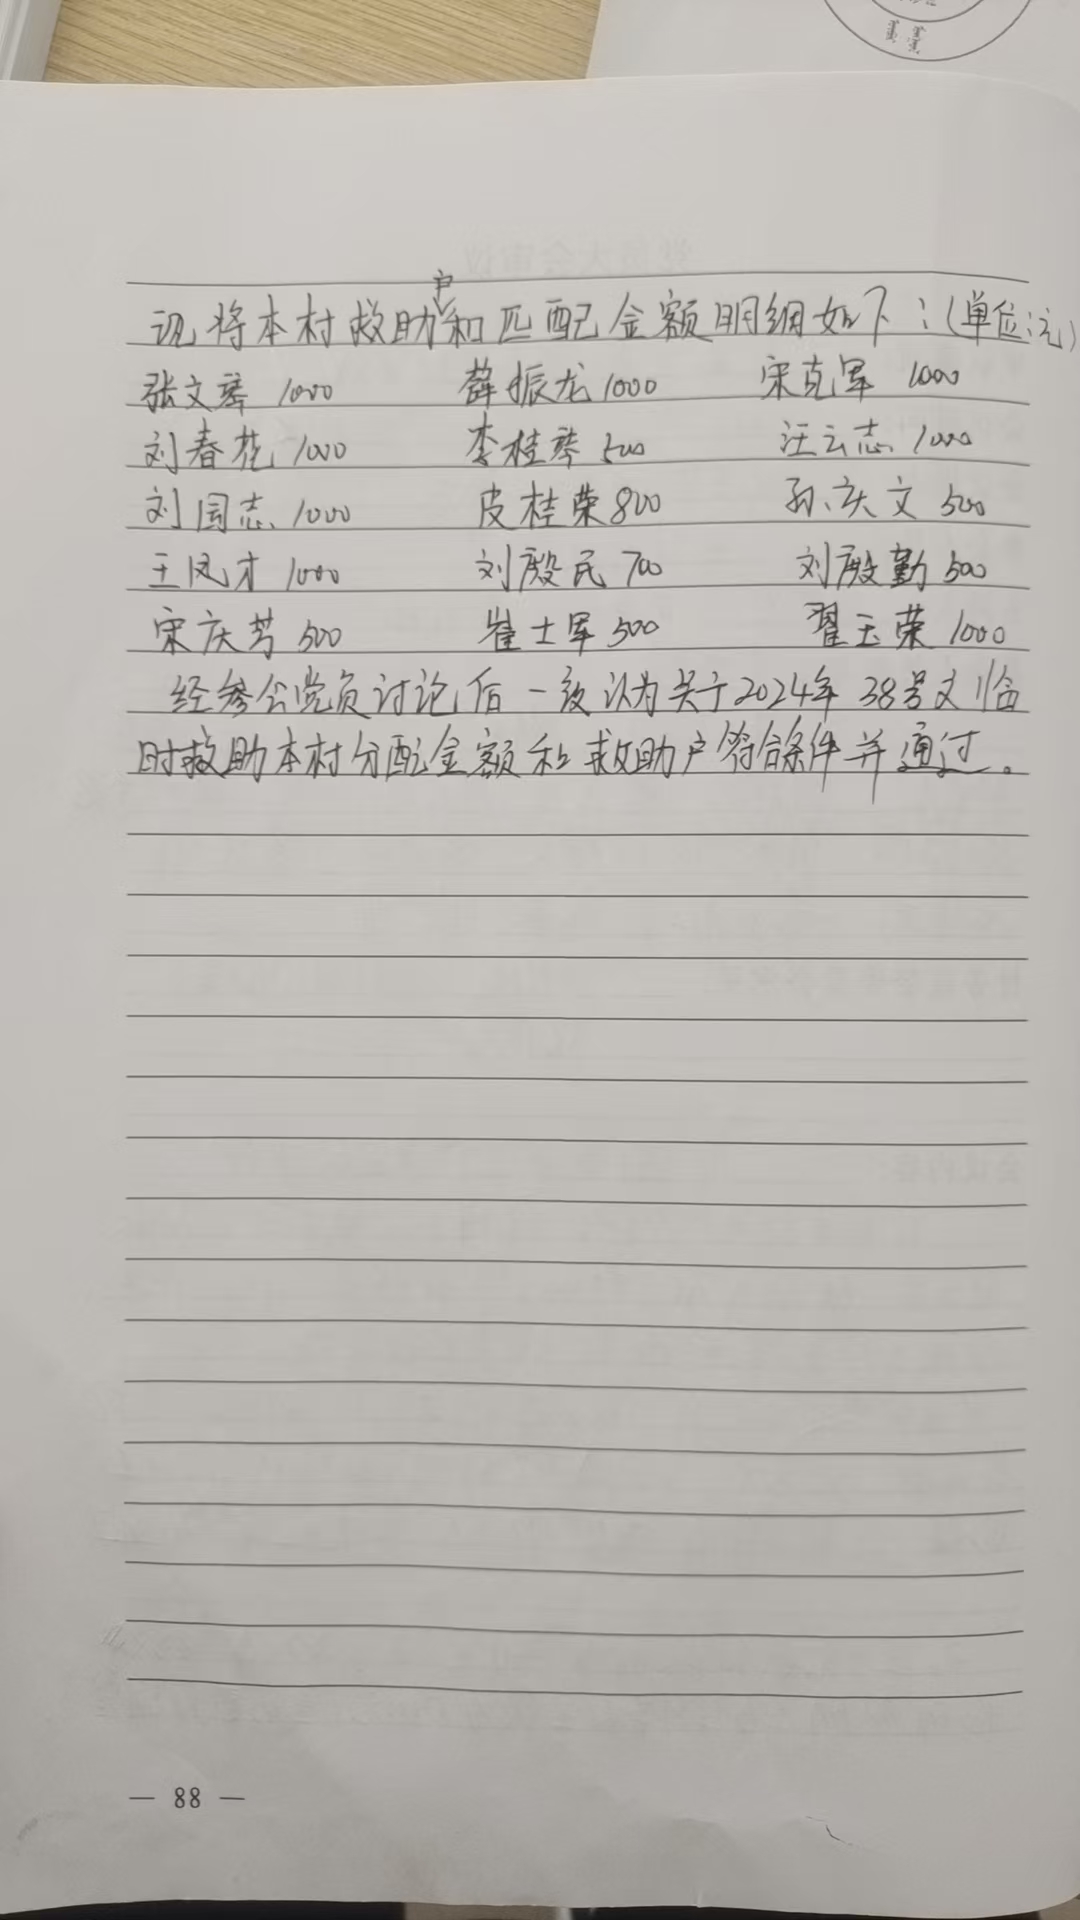 现将本村救助户和匹配金额明细如下：（单位：元）
张文琴 1000 薛振龙 1000 宋克军 1000
刘春花 1000 李桂琴 500 汪云志 1000
刘国志 1000 皮桂荣 800 孙庆文 500
王凤才 1000 刘殿民 700 刘殿勤 500
宋庆芳 500 崔士军 500 翟玉荣 1000
经参会党员讨论后一致认为关于2024年38号文临
时救助本村分配金额和救助户符合条件并通过。
— 88 —